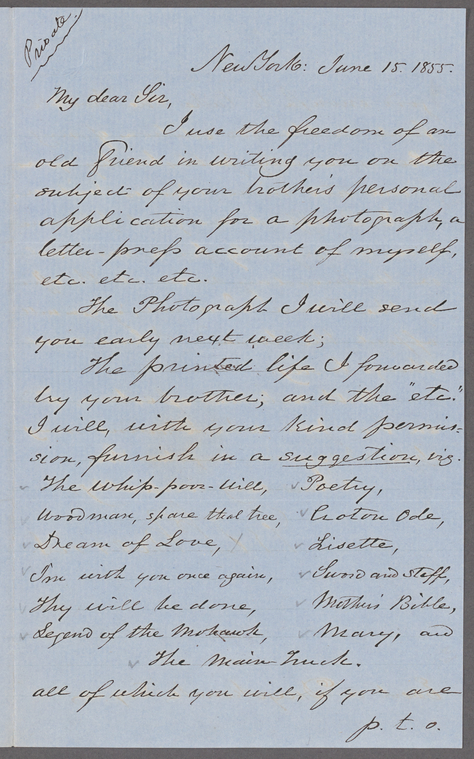 Private.
New York: June 15. 1855.
My dear Sir,
I use the freedom of an
old friend in writing you on the
subject of your brother's personal
application for a photograph, a
letter-press account of myself,
etc. etc. etc.
The Photograph I will send
you early next week;
The printed life I forwarded
by your brother; and the "etc."
I will, with your kind permis-
sion, furnish in a suggestion, viz.
The Whip-poor-will, Poetry,
Woodman, spare that tree, Croton Ode,
Dream of Love, Lisette,
I'm with you once again, Sword and Staff,
Thy will be done, Mother's Bible,
Legend of the Mohawk, Mary, and
The Main-Truck.
all of which you will, if you are
p. t. o.